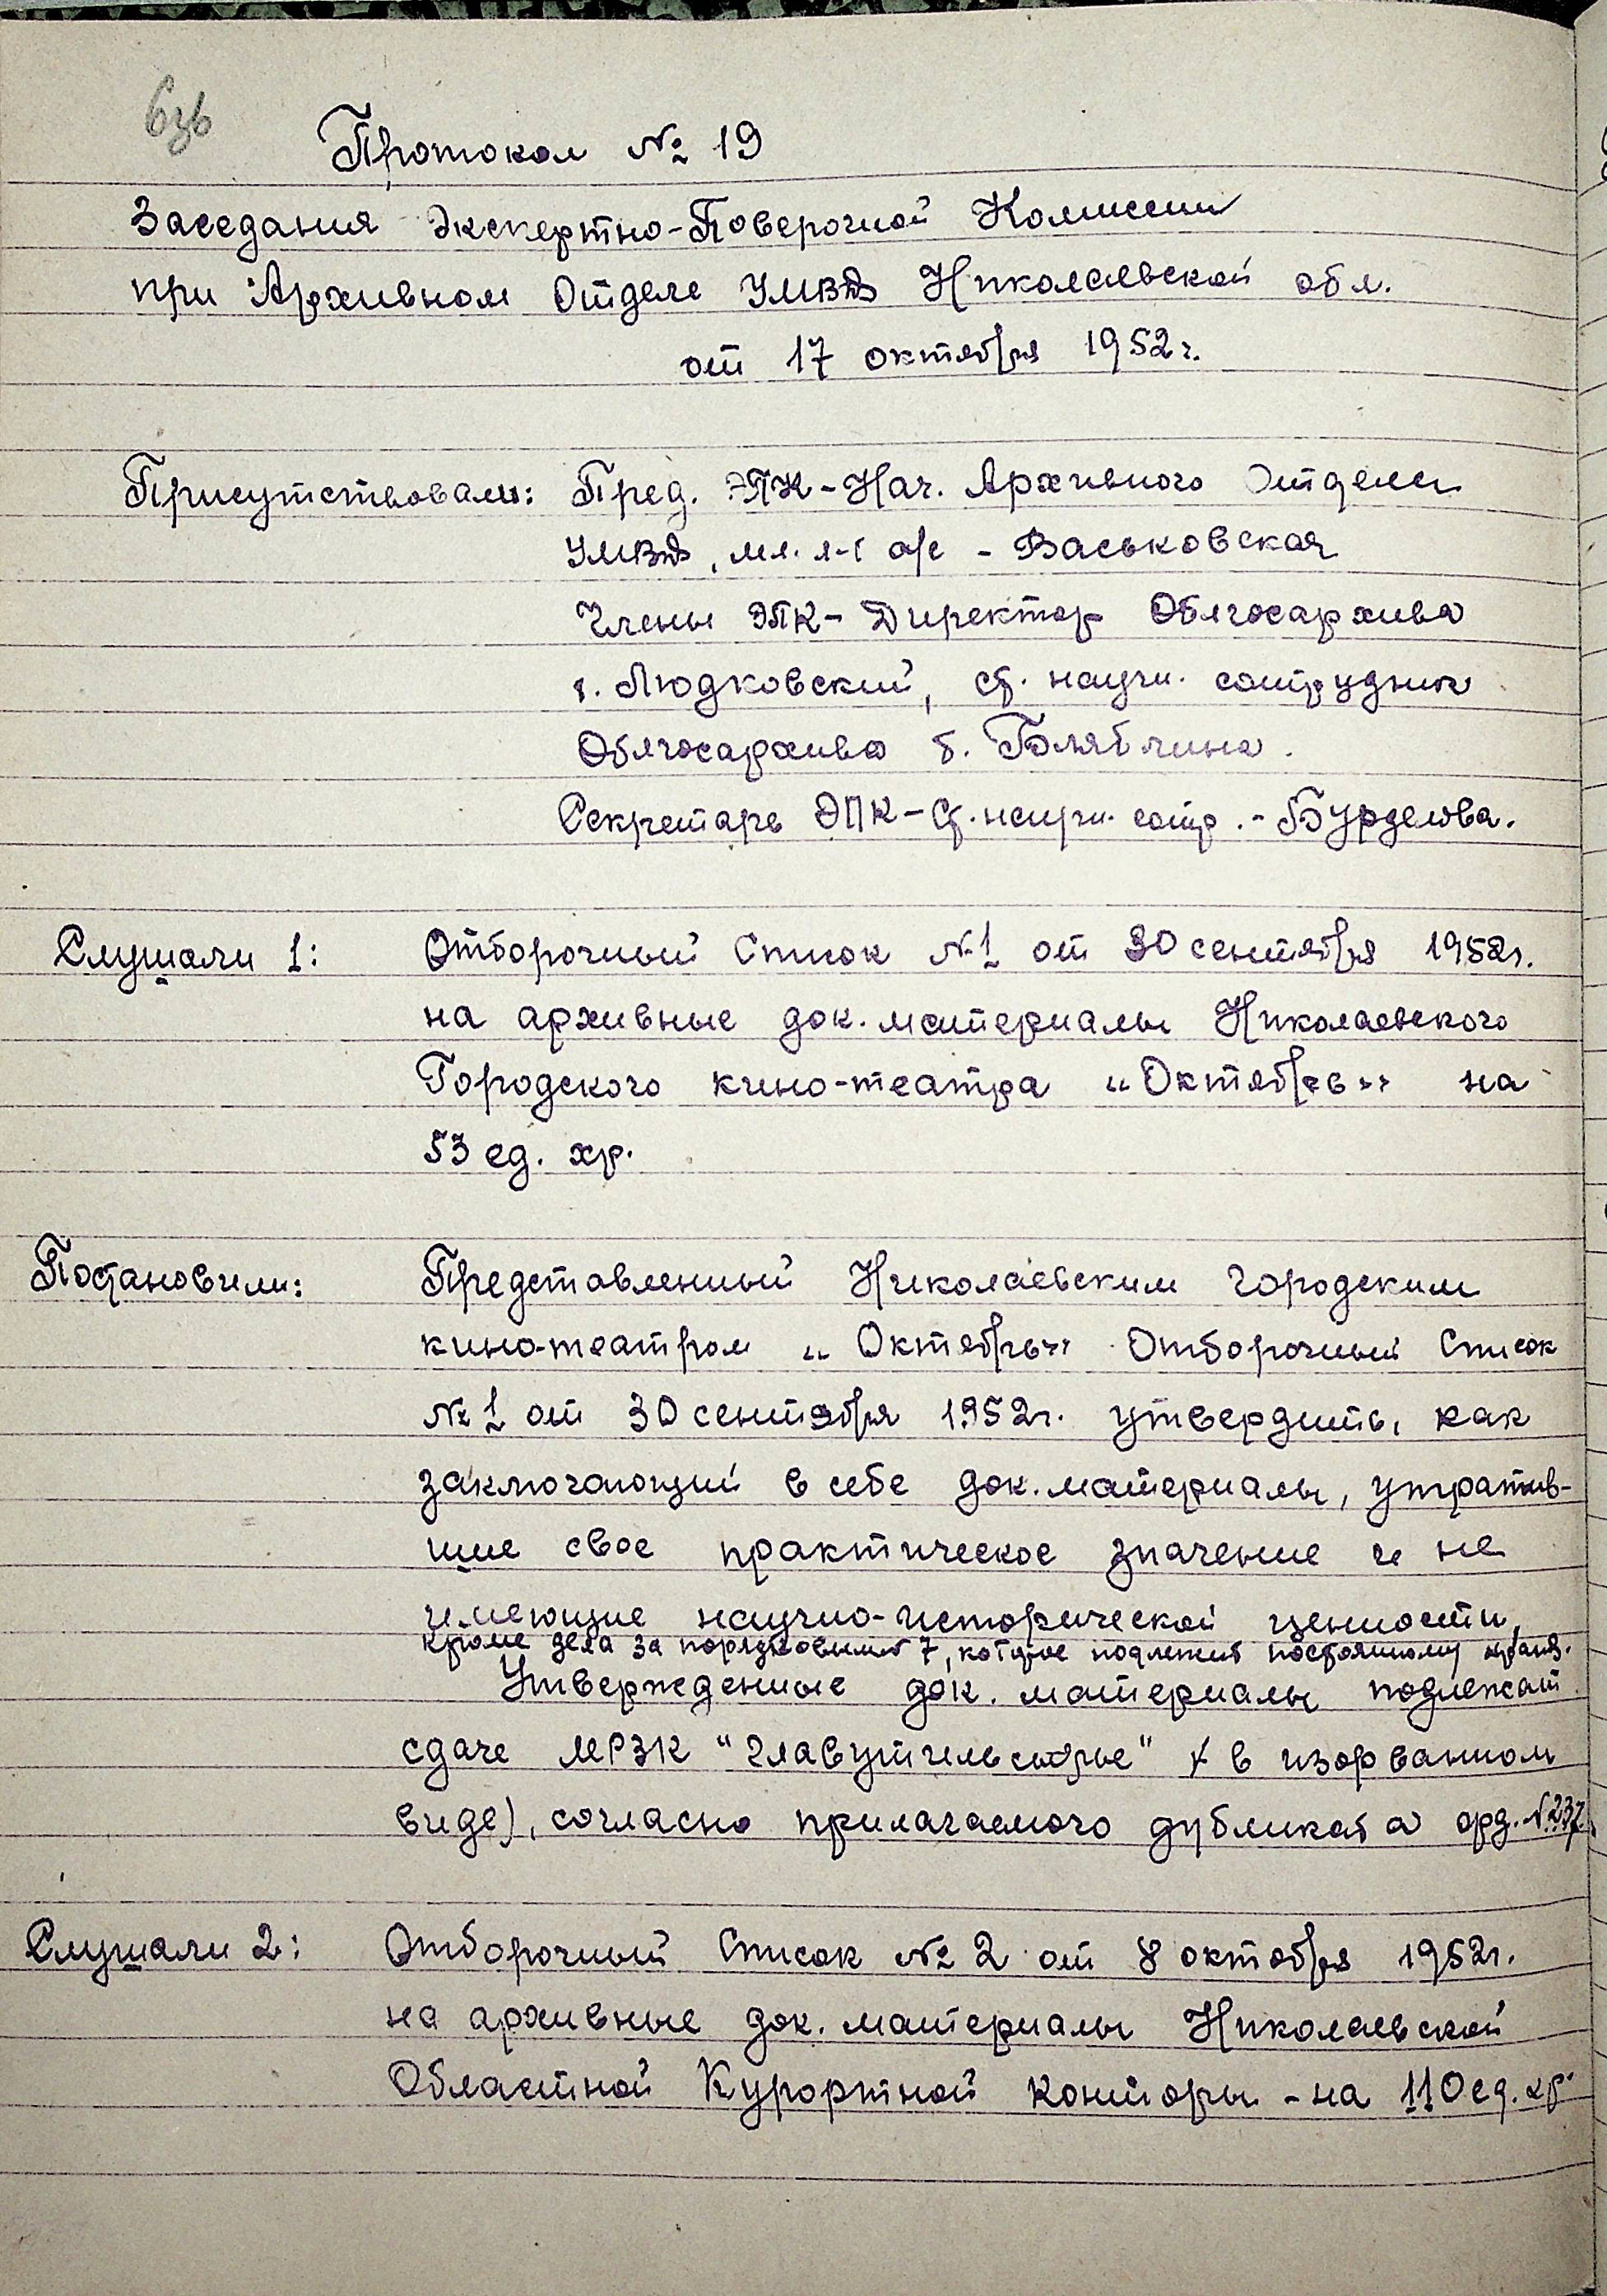 6зв
Протокол № 19
Заседания Экспертно-Поверочной Комиссии
при Архивном Отделе УМВД Николаевской обл.
от 17 октября 1952г.
Присутствовали: Пред. ЭПК-Нач. Архивного Отдела
УМВД, мл. л-т а/с - Васьковская
Члены ЭПК- Директор Облгосархива
т. Людковский, ст. научн. сотрудник
Облгосархива т.
Секретарь ЭПК-ст. научн. сотр. - Бурделова.
Слушали 1: Отборочный Список №1 от 30 сентября 1952г.
на архивные док. материалы Николаевского
Городского кино-театра "Октябрь" на
53 ед. хр.
Постановили: Представленный Николаевским городским
кино-театром "Октябрь" Отборочный Список
№ 1 от 30 сентября 1952г. утвердить, как
заключающий в себе док. материалы, утратив-
шие свое практическое значение и не
имеющие научно-исторической ценности,
кроме дела за порядковым № 7, которое подлежит постоянному хранв.
Утвержденные док. материалы подлежат
сдаче МРЗК "Главутильсырье" (в изорванном
виде), согласно прилагаемого дубликата орд. №237.
Слушали 2: Отборочный Список № 2 от 8 октября 1952г.
на архивные док. материалы Николаевской
Областной Курортной конторы - на 110 ед. хр.